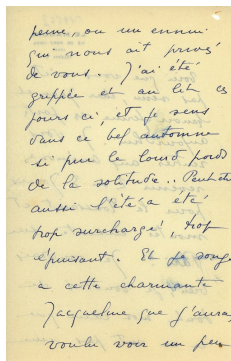 peine, ou un ennui
qui nous ait privés
de vous. J'ai été
grippée et au lit ces
jours ci, et je sens
dans ce bel automne
si pur le lourd poids
de la solitude.. Peut-être
aussi l'été a été
trop surchargé, trop
épuisant. Et je songe
à cette charmante
Jacqueline que j'aurais
voulu voir un peu